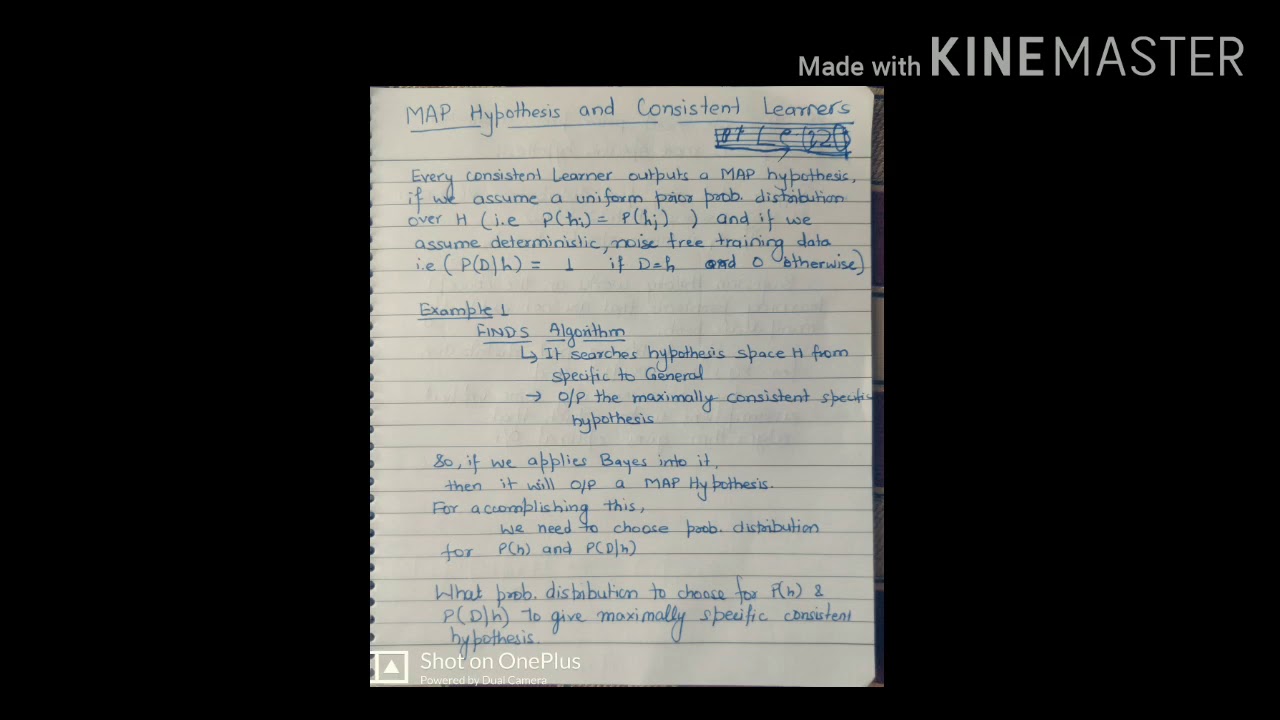 Made with KINEMASTER
MAP Hypothesis and Consistent Learners
Every consistent Learner outputs a MAP hypothesis,
if we assume a uniform prior prob. distribution
over H (i.e P(hi) = P(hj) ) and if we
assume deterministic, noise free training data
i.e ( P(D|h) = 1 if D=h and 0 otherwise)
Example 1
FINDS Algorithm
↳ It searches hypothesis space H from
specific to General
→ O/P the maximally consistent specific
hypothesis
So, if we applies Bayes into it,
then it will O/P a MAP Hypothesis.
For accomplishing this,
we need to choose prob. distribution
for P(h) and P(D|h)
What prob. distribution to choose for P(h) &
P(D|h) To give maximally specific consistent
hypothesis.
Shot on OnePlus
Powered by Dual Camera